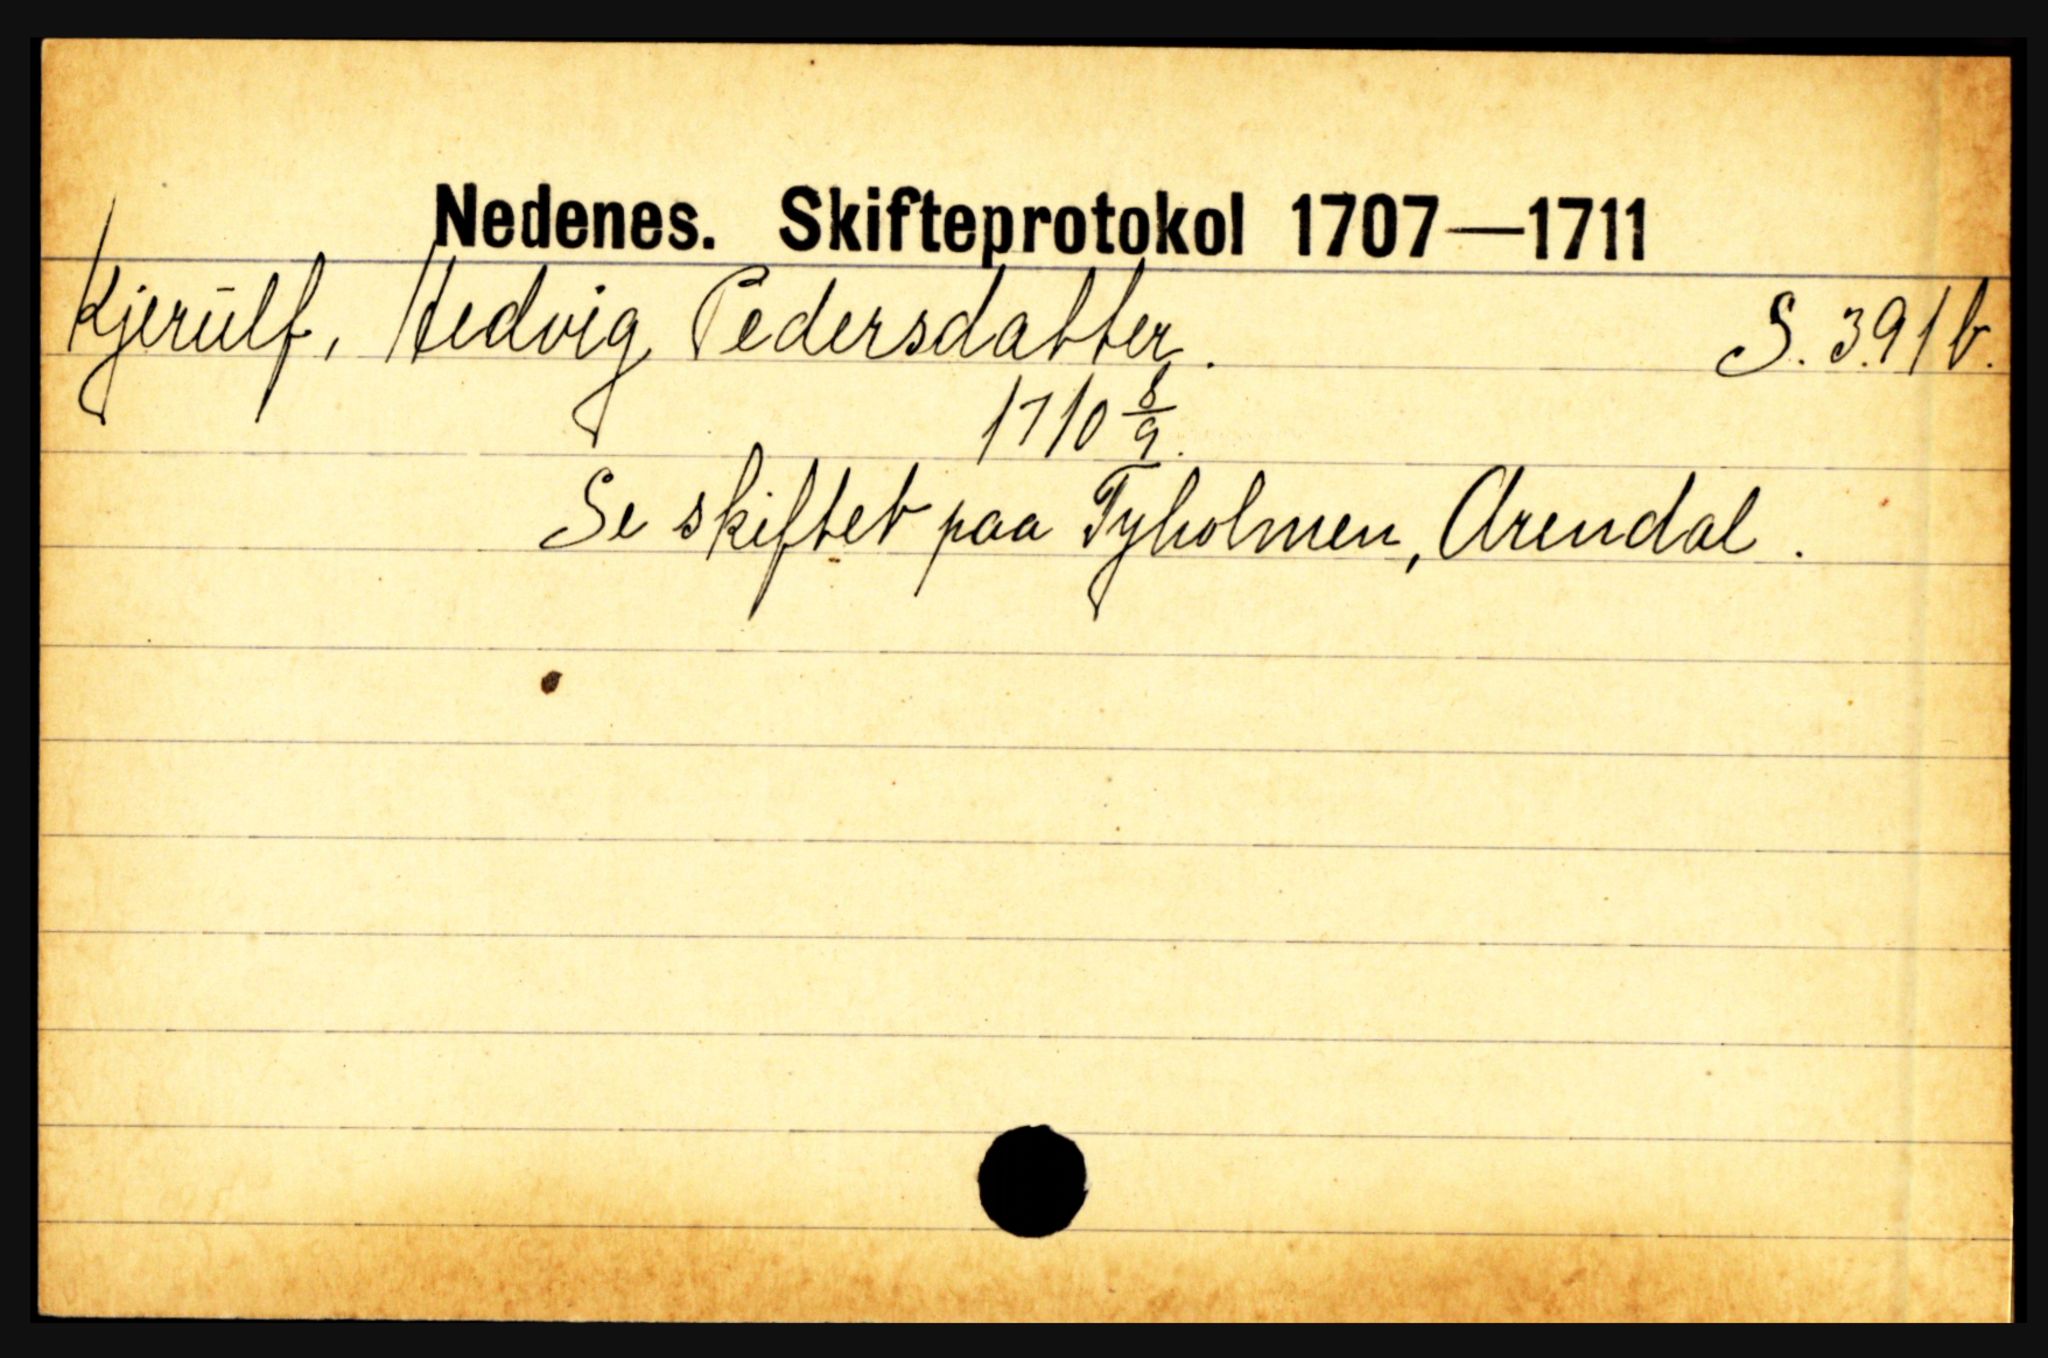 Nedenes. Skifteprotokol 1707—1711
Kjerulf, Hedvig Pedersdatter. S. 391b.
1710 8/9.
Se skiftet paa Tyholmen, Arendal.